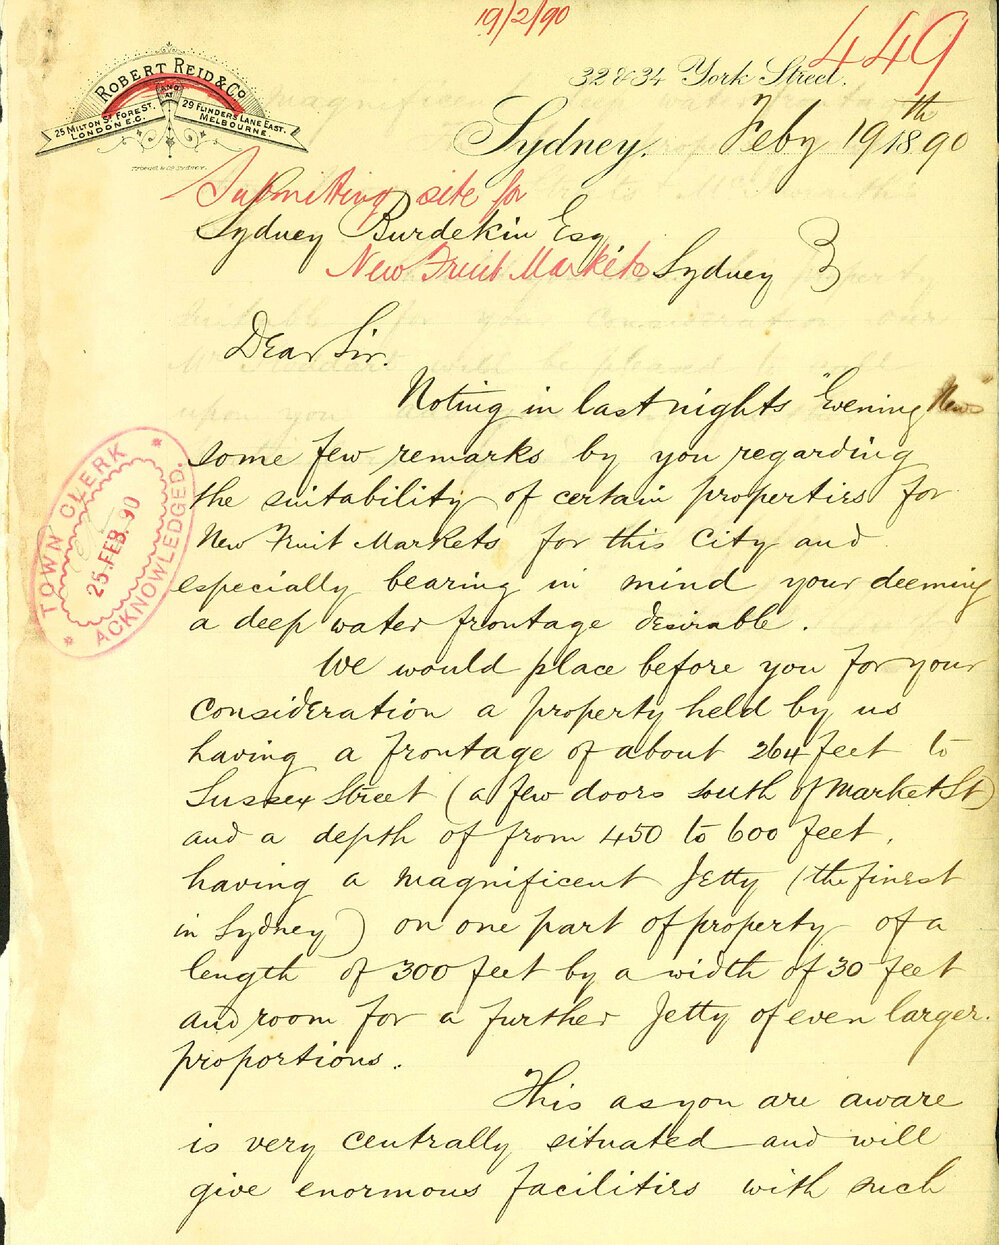 19/2/90
449
ROBERT REID & Co
AND AT
25 MILTON St. FOREST. LONDON E.C.
29 FLINDERS LANE EAST. MELBOURNE.
32 & 34 York Street.
Sydney. Feby 19th 1890
Submitting site for
Sydney Burdekin Esq
New Fruit Markets Sydney
Dear Sir.
Noting in last nights "Evening News
some few remarks by you regarding
the suitability of certain properties for
New Fruit Markets for this City and
especially bearing in mind your deeming
a deep water frontage desirable.
We would place before you for your
consideration a property held by us
having a frontage of about 264 feet to
Sussex Street (a few doors south of Market St)
and a depth of from 450 to 600 feet.
having a magnificent Jetty (the finest
in Sydney) on one part of property of a
length of 300 feet by a width of 30 feet
and room for a further Jetty of even larger
proportions.
This as you are aware
is very centrally situated and will
give enormous facilities with such
TOWN CLERK
25. FEB. 90
ACKNOWLEDGED.